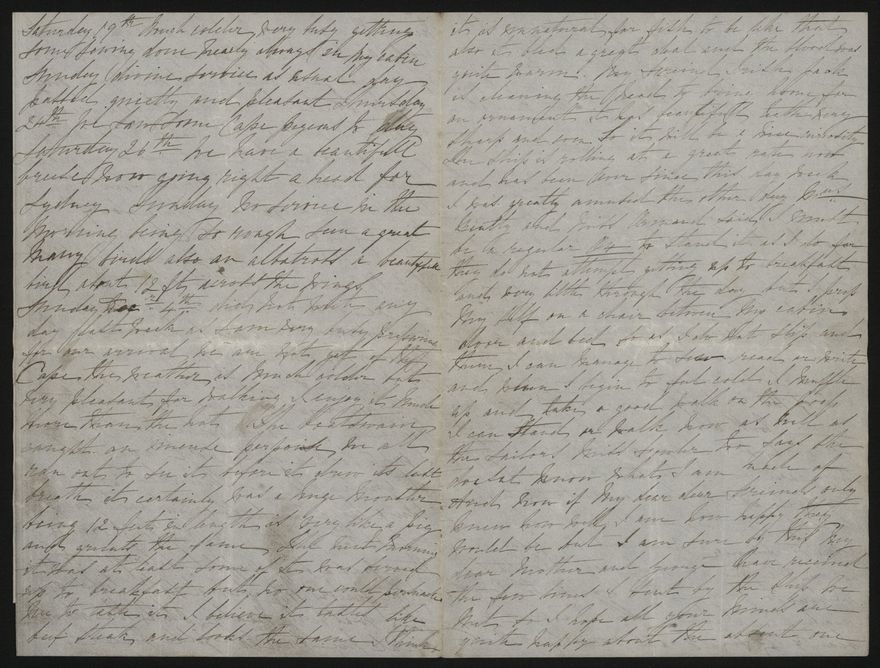 Saturday 19th Much colder very busy getting
some sewing done nearly always in my cabin
Sunday divine service as usual day
passed quietly and pleasant Thursday
24th we saw some Cape pigeons to day
Saturday 26th we have a beautifull
breese now going right a head for
Sydney Sunday no service in the
Morning being so rough seen a great
many birds also an albatross a beautifull
bird about 12 fts across the wings
Sunday Dec 4th did not write any
day last week as I am very busy preparing
for our arrival we are not yet of the
Cape the weather is much colder but
very pleasant for walking I enjoy it much
more than the hot The boatswain
caught an imense porpoise we all
ran out to see it before it drew its last
breath it certainly was a huge monster
being 12 feet in length is very like a pig
and grunts the same and next morning
it was at least some of it was served
up to breakfast but no one could persuade
me to taste it I believe it tasted like
beef steak and looks the same I think
it is unnatural for fish to be like that
also it bled a great deal and the blood was
quite warm. My friend Irish Jack
is cleaning the head to bring home for
an ornament it has beautifull teeth very
sharp and even so it will be a nice curiosity
Our ship is rolling at a great rate now
and has been ever since this day week
I was greatly amused the other day Mrs
Beatty and Miss said I must
be a regular to stand it as I do for
they do not attempt getting up to breakfast
and very little through the day but I prop
My self on a chair between my cabin
door and bed so as I do not slip and
then I can manage to sew read or write
and when I begin to feel cold I muffle
up and take a good walk on the poop
I can stand or walk now as well as
the sailors Miss says she
does not know what I am made of
And now if my dear dear friends only
knew how well I am how happy they
would be but I am sure by this my
dear Mother and George have received
the few lines I sent by the ship we
met so I hope all your minds are
quite happy about the absent one